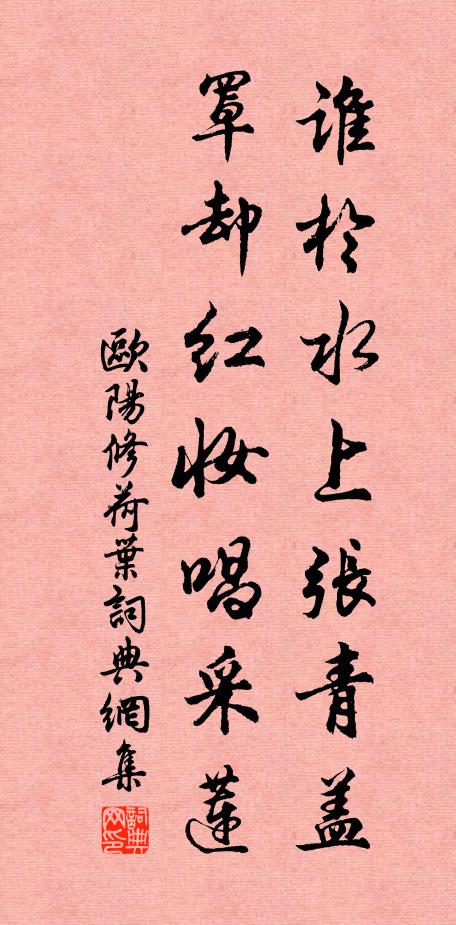 誰於水上張青盖
罩却紅妝唱采蓮
歐陽修荷葉詞典網集
詞典网印